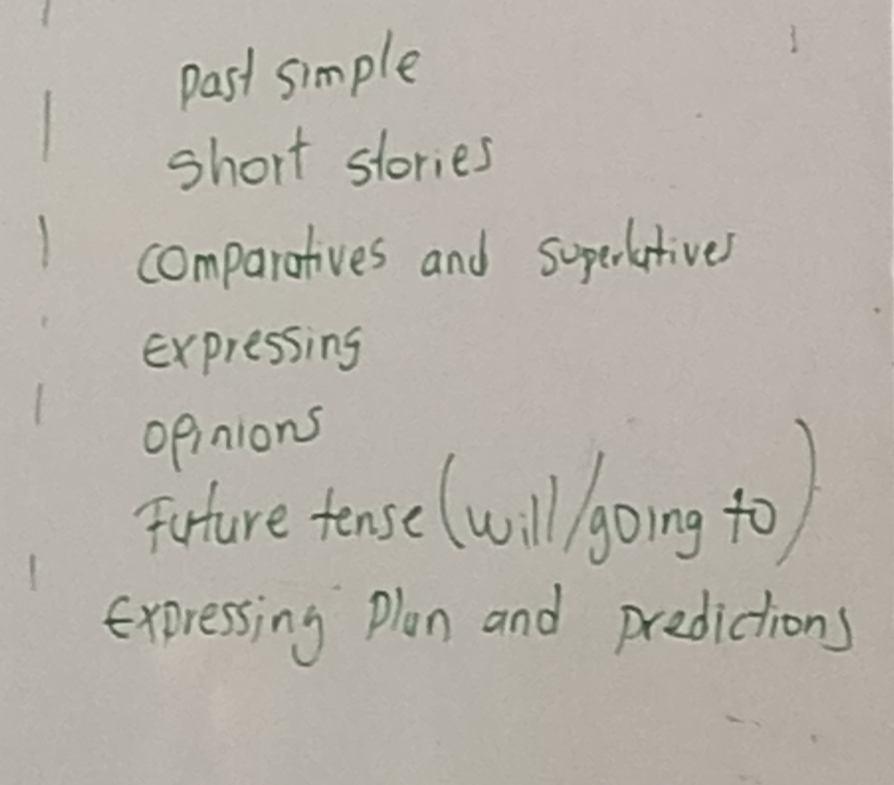 past simple
short stories
comparatives and superlatives
expressing
opinions
Future tense (will/going to)
Expressing Plan and predictions